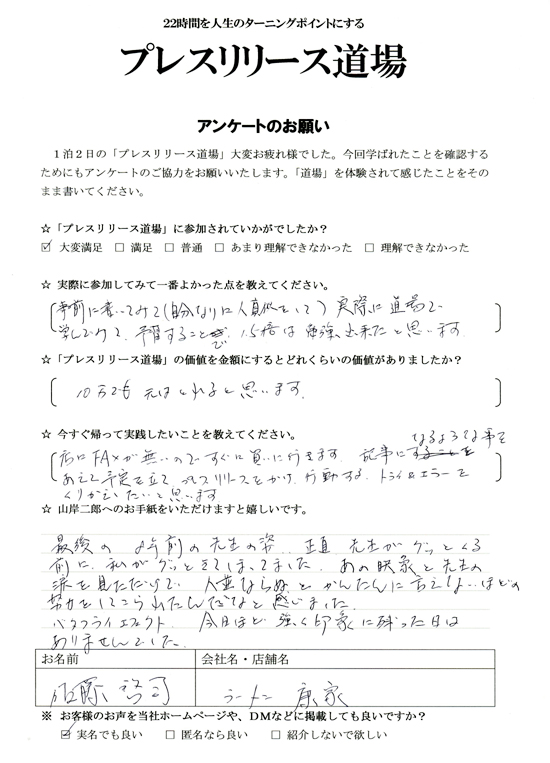 22時間を人生のターニングポイントにする
プレスリリース道場
アンケートのお願い
１泊２日の「プレスリリース道場」大変お疲れ様でした。今回学ばれたことを確認する
ためにもアンケートのご協力をお願いいたします。「道場」を体験されて感じたことをその
まま書いてください。
☆「プレスリリース道場」に参加されていかがでしたか？
☑ 大変満足 □ 満足 □ 普通 □ あまり理解できなかった □ 理解できなかった
☆ 実際に参加してみて一番よかった点を教えてください。
事前に書いてみて(自分なりに人真似をして) 実際に道場で
学んでみて、予習することで 1.5倍は勉強出来たと思います
☆「プレスリリース道場」の価値を金額にするとどれくらいの価値がありましたか？
10万でも 元はとれると思います.
☆ 今すぐ帰って実践したいことを教えてください。
店にFAXが無いのですぐに買いに行きます. 記事になるような事を
あえて予定を立て、プレスリリースをかけ、行動する、トライ&エラーを
くりかえしたいと思います
☆ 山岸二郎へのお手紙をいただけますと嬉しいです。
最後の 前の先生の姿. 正直 先生がグッとくる
前に、私がグッときてしまってました. あの映象と先生の
涙を見ただけで、人並ならぬ、とかんたんに言えないほどの
努力をしてこられたんだなと感じました.
バタフライエフェクト 今日ほど強く印象に残った日は
ありませんでした.
お名前 会社名・店舗名
佐藤 啓司 ラーメン 康家
※ お客様のお声を当社ホームページや、DMなどに掲載しても良いですか？
☑ 実名でも良い □ 匿名なら良い □ 紹介しないで欲しい